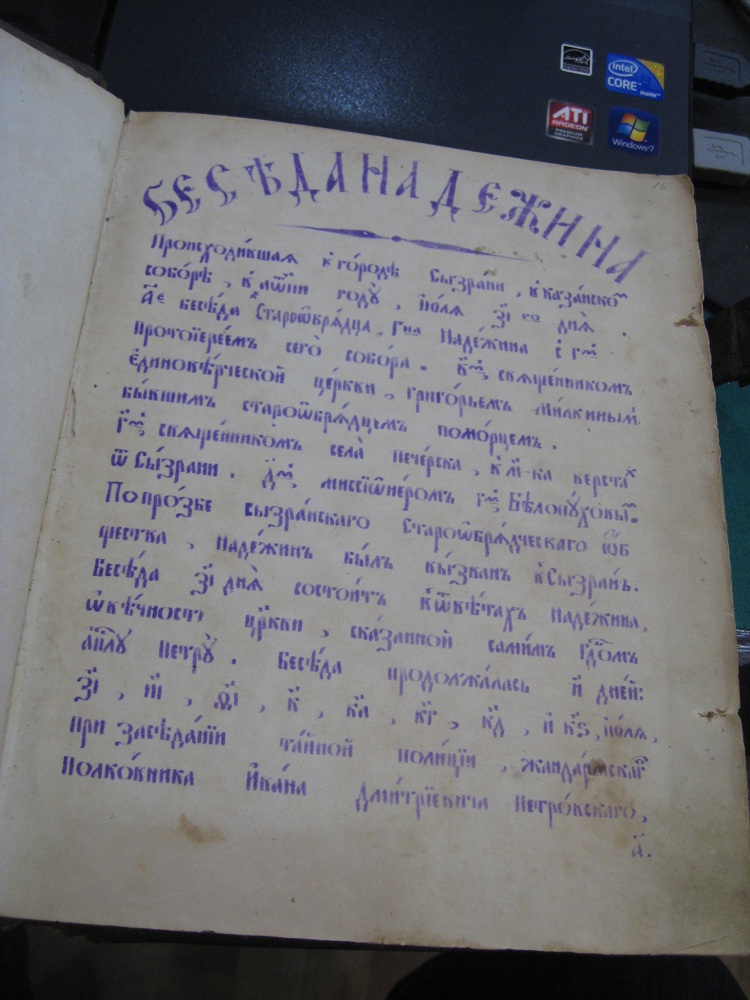 intel
CORE
inside
ATI
RADEON
Windows 7
БЕСѢДА НАДЕЖИНА
Происходившая в го́родѣ Сызрани, в казанскомъ
собо́рѣ, в҃ аѿпи году̀, ію́ля з҃і го дня̀.
а҃е бесѣ́да Староѡбря́дца, Гна Наде́жина с г҃мъ
протоїере́емъ сего̀ собо́ра. в҃мъ священникомъ
єдиновѣ́рческой це́ркви, григо́рьемъ Ми́лкинымъ
бы́вшимъ староѡбря́дцемъ помо́рцемъ.
г҃мъ свяще́нникомъ села̀ пече́рска,
ѿ Сы́зрани. д҃мъ миссїѡне́ромъ гмъ Бѣлоѹ́ховымъ.
По про́збе сызра́нскаго Староѡбря́дческаго ѡб
щества, наде́жинъ бы́лъ вы́званъ в Сызрань.
Бесѣ́да з҃і дня̀ состои́тъ в ѿвѣ́тахъ наде́жина,
ѡ вѣ́чности цр҃кви, ска́занной сами́мъ гдⷭ҇омъ
ап҃лу петру̀. Бесѣ́да продолжа́лась и҃ дне́й:
з҃і, и҃і, ѳ҃і, к҃, к҃а, к҃г, к҃д, и к҃ѕ, ію́ля,
при засѣда́нїи та́йной поли́цїи, жанда́рмскагѡ
Полко́вника Ива́на Дми́трїевича Петро́вскаго,
а҃.